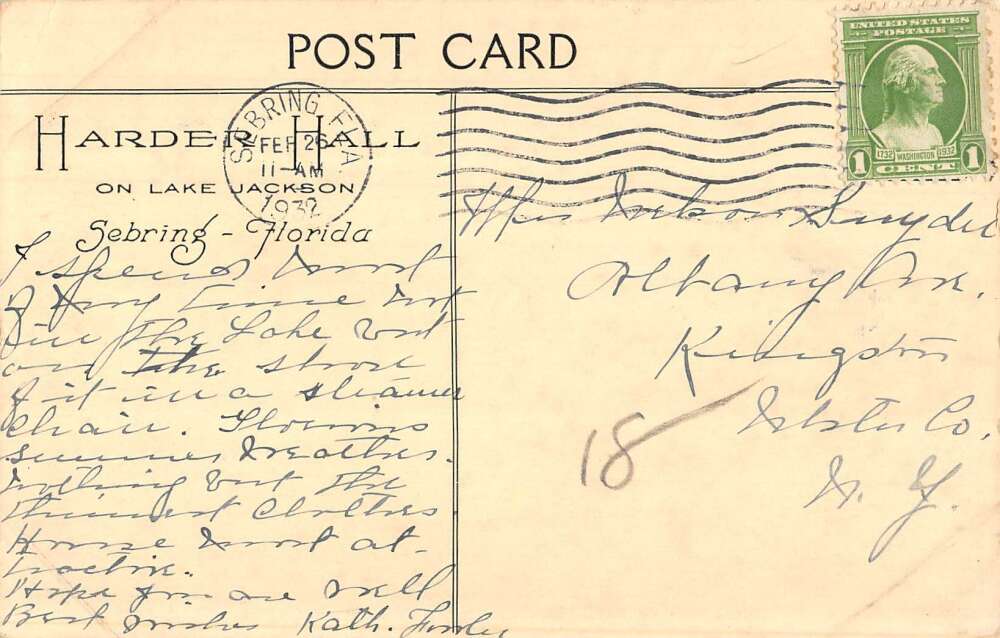 POST CARD
HARDER HALL
ON LAKE JACKSON
Sebring - Florida
SEBRING, FLA.
FEB 26
11-AM
1932
UNITED STATES
POSTAGE
1732 WASHINGTON 1932
1 CENT 1
I spend most
of my time not
in the Lake but
on the shore
of it in a steamer
chair. Glorious
summer weather.
nothing but the
thinnest clothes.
House most at-
tractive.
Hope you are well
Best wishes Kath.
Mrs Nelson Snyder
Albany Ave.
Kingston
Ulster Co.
N. Y.
18